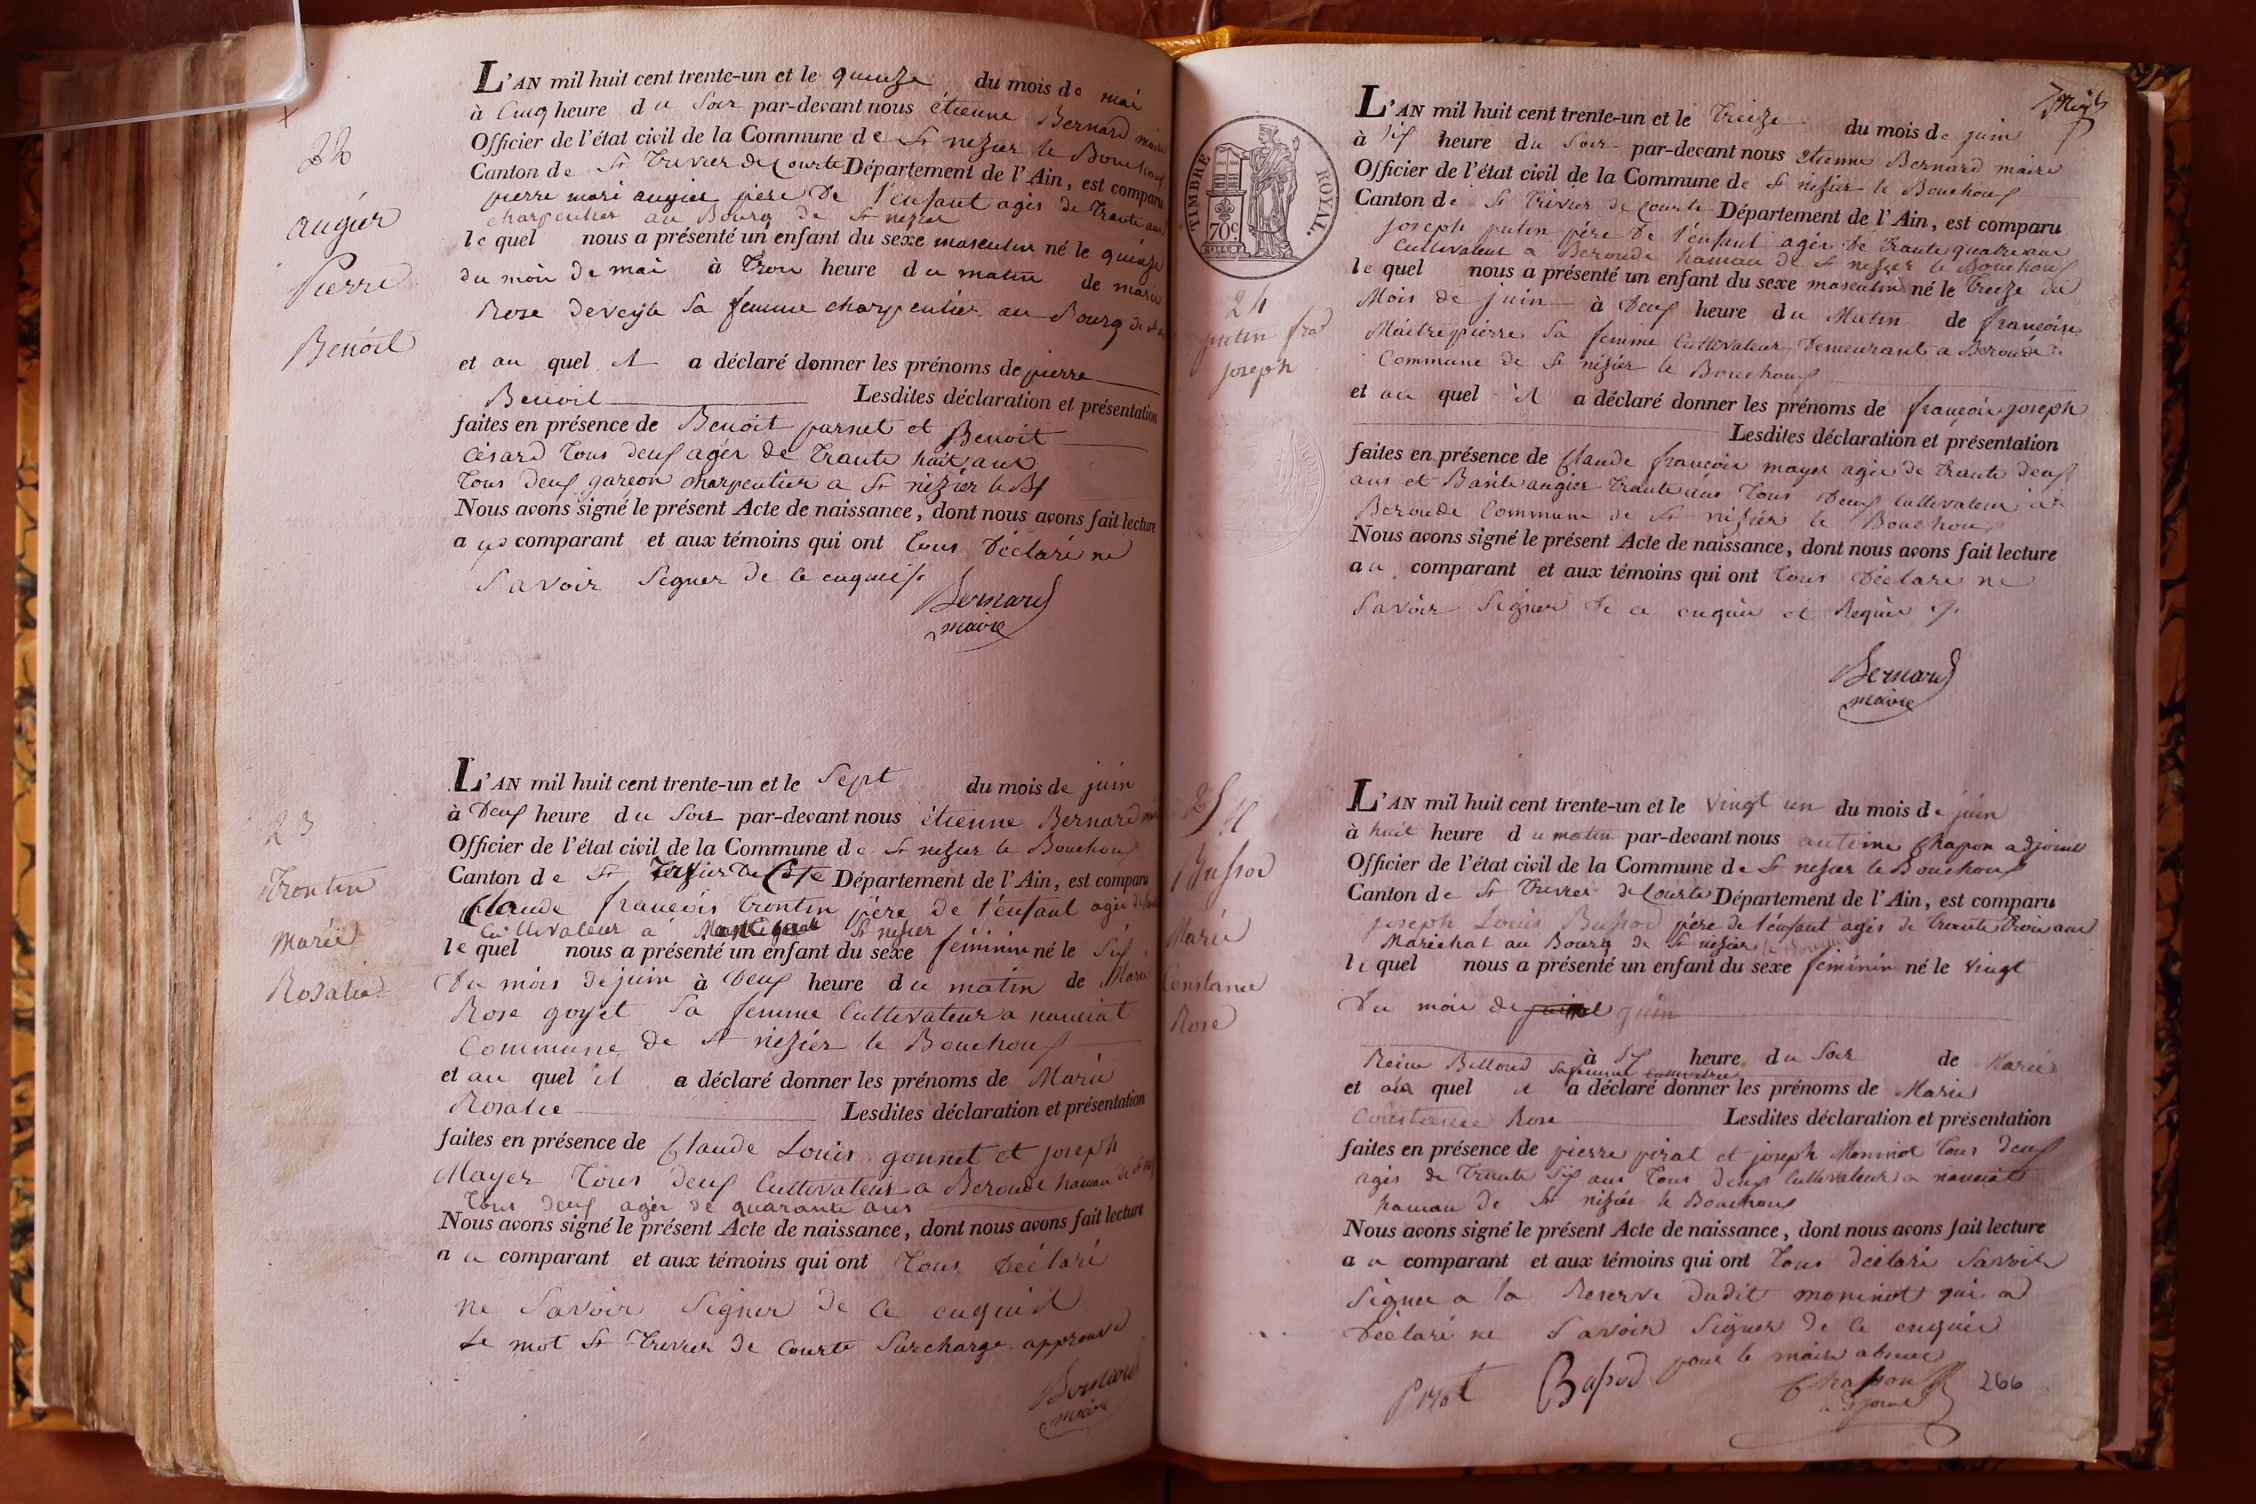 22
augier
Pierre
Benoit
L'AN mil huit cent trente-un et le quinze du mois de mai
à cinq heure du soir par-devant nous étienne Bernard maire
Officier de l'état civil de la Commune de St nezier le Bouchoux
Canton de St trivier de Courte Département de l'Ain, est comparu
pierre mari augier père de l'enfant agés de trante ans
charpentier au Bourg de St nezier
lequel nous a présenté un enfant du sexe masculin né le quinze
du mois de mai à trois heure du matin de marie
Rose deveyle sa femme charpentier au Bourg de St
et au quel il a déclaré donner les prénoms de pierre
Benoit Lesdites déclaration et présentation
faites en présence de Benoit parnet et Benoit
césard tous deux agés de trante huit ans
tous deux garçon charpentier a St nezier le Bx
Nous avons signé le présent Acte de naissance, dont nous avons fait lecture
a comparant et aux témoins qui ont tous déclaré ne
savoir signer de ce enquis
Bernard
maire
23
trontin
marie
Rosalie
L'AN mil huit cent trente-un et le sept du mois de juin
à deux heure du soir par-devant nous étienne Bernard
Officier de l'état civil de la Commune de St nezier le Bouchoux
Canton de St Département de l'Ain, est comparu
Claude françois trontin père de l'enfant agés
cultivateur a St nezier
lequel nous a présenté un enfant du sexe féminin né le six
du mois de juin à deux heure du matin de Marie
Rose goyet sa femme cultivateur a nanciat
commune de St nezier le Bouchoux
et au quel il a déclaré donner les prénoms de Marie
Rosalie Lesdites déclaration et présentation
faites en présence de Claude Louis gonnet et joseph
Mayer tous deux cultivateur a Beroude hamau de
tous deux agés de quarante ans
Nous avons signé le présent Acte de naissance, dont nous avons fait lecture
a u comparant et aux témoins qui ont tous déclaré
ne savoir signer de ce enquis
Le mot St trivier de courte surchargé approuvé
Bernard
maire
TIMBRE ROYAL.
70c
24
putin frs
joseph
L'AN mil huit cent trente-un et le treize du mois de juin
à six heure du soir par-devant nous étienne Bernard maire
Officier de l'état civil de la Commune de St nezier le Bouchoux
Canton de St trivier de Courte Département de l'Ain, est comparu
joseph putin père de l'enfant agés de trante quatre ans
cultivateur a Beroude hamau de St nezier le Bouchoux
lequel nous a présenté un enfant du sexe masculin né le treize du
Mois de juin à deux heure du Matin de françoise
Maitrepierre sa femme cultivateur demeurant a Beroude
commune de St nezier le Bouchoux
et au quel il a déclaré donner les prénoms de françois joseph
Lesdites déclaration et présentation
faites en présence de Claude françois mayer agés de trante deux
ans et Basile augier trante ans tous deux cultivateur à
Beroude Commune de St nezier le Bouchoux
Nous avons signé le présent Acte de naissance, dont nous avons fait lecture
au comparant et aux témoins qui ont tous déclaré ne
savoir signer de ce enquis et Requis
Bernard
maire
25
Bussod
Marie
Constance
Rose
L'AN mil huit cent trente-un et le vingt un du mois de juin
à huit heure du matin par-devant nous Chapon adjoint
Officier de l'état civil de la Commune de St nezier le Bouchoux
Canton de St trivier de Courte Département de l'Ain, est comparu
joseph Louis Bussod père de l'enfant agés de trante trois ans
Maréchal au Bourg de St nezier
lequel nous a présenté un enfant du sexe féminin né le vingt
Du mois de juin
à six heure du soir de Marie
Reine Billoud sa femme
et au quel il a déclaré donner les prénoms de Marie
Constance Rose Lesdites déclaration et présentation
faites en présence de pierre pirat et joseph Moninot tous deux
agés de trante six ans tous deux cultivateur a nanciat
hamau de St nezier le Bouchoux
Nous avons signé le présent Acte de naissance, dont nous avons fait lecture
a u comparant et aux témoins qui ont tous déclaré savoir
signer a la Reserve dudit moninot qui a
Déclaré ne savoir signer de ce enquis
pour le maire absent
pirat Bussod Chapon 266
adjoint